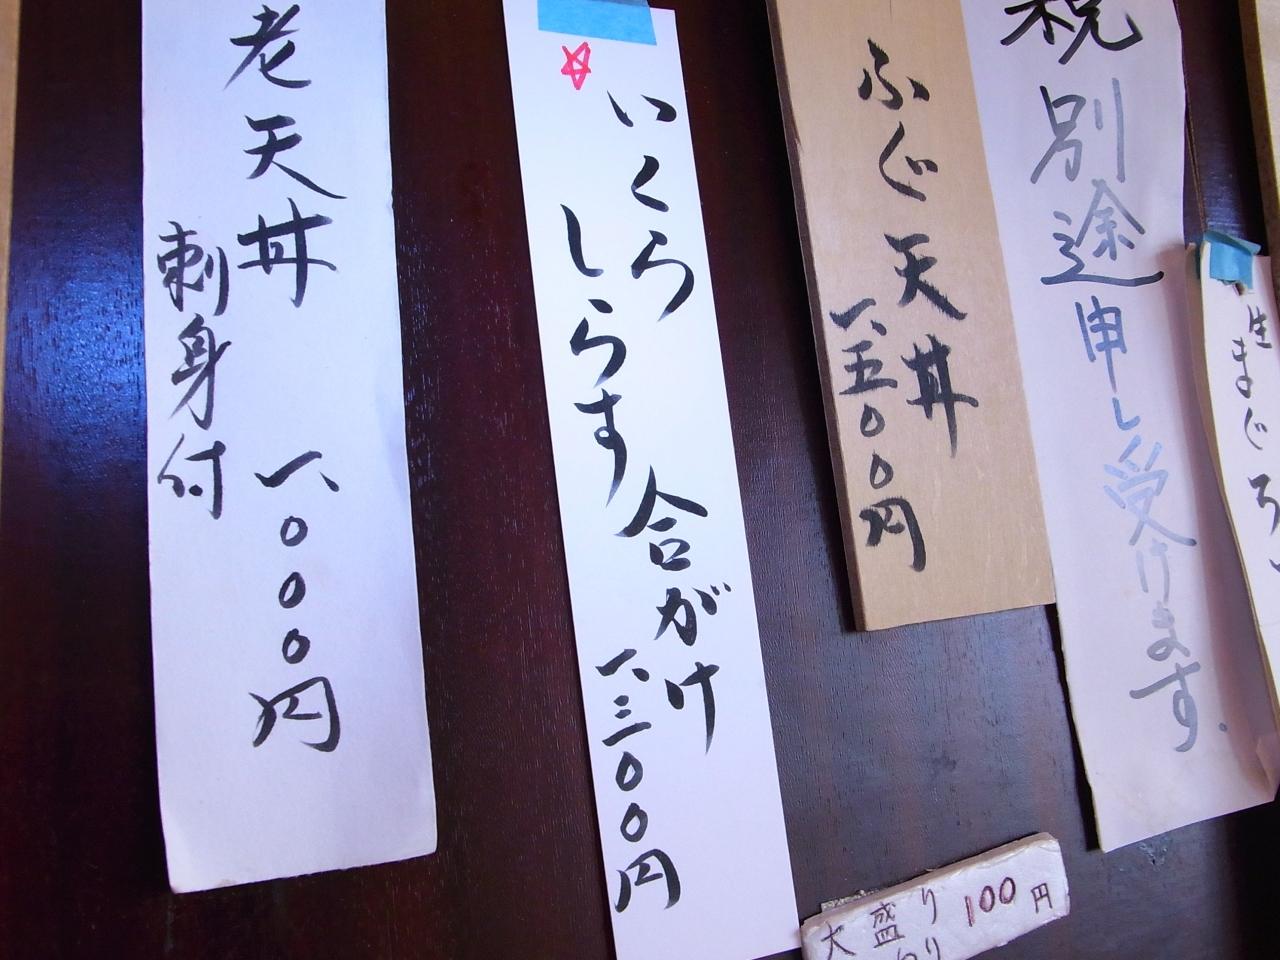 老天丼 一、〇〇〇円
刺身付
いくら
しらす
合がけ
一、三〇〇円
ふぐ天丼
一、五〇〇円
税別途申し受けます.
生まぐろ
大盛り 100円